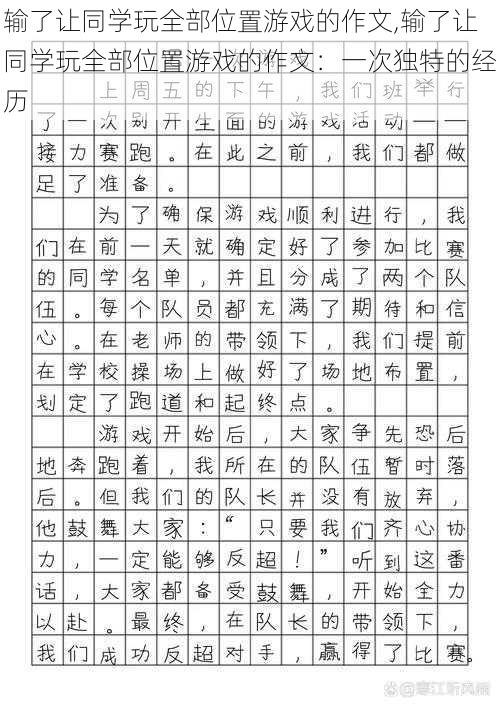 输了让同学玩全部位置游戏的作文,输了让
同学玩全部位置游戏的作文：一次独特的经
历
上周五的下午，我们班举行
了一次别开生面的游戏活动——
接力赛跑。在此之前，我们都做
足了准备。
为了确保游戏顺利进行，我
们在前一天就确定好了参加比赛
的同学名单，并且分成了两个队
伍。每个队员都充满了期待和信
心。在老师的带领下，我们提前
在学校操场上做好了场地布置，
划定了跑道和起终点。
游戏开始后，大家争先恐后
地奔跑着，我所在的队伍暂时落
后。但我们的队长并没有放弃，
他鼓舞大家：“只要我们齐心协
力，一定能够反超！”听到这番
话，大家都备受鼓舞，开始全力
以赴。最终，在队长的带领下，
我们成功反超对手，赢得了比赛。
@寒江听风雨